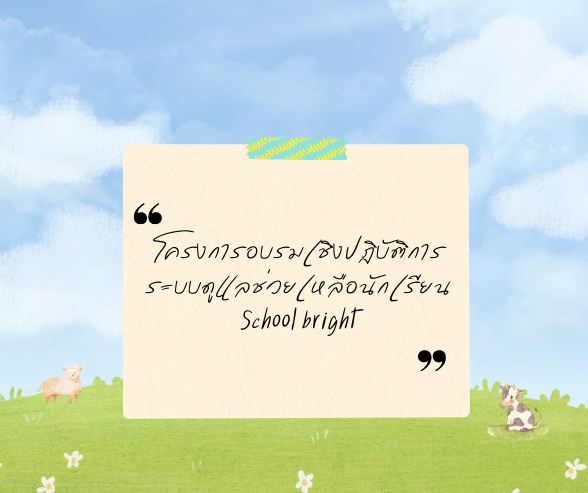 “
โครงการอบรมเชิงปฏิบัติการ
ระบบดูแลช่วยเหลือนักเรียน
School bright
”